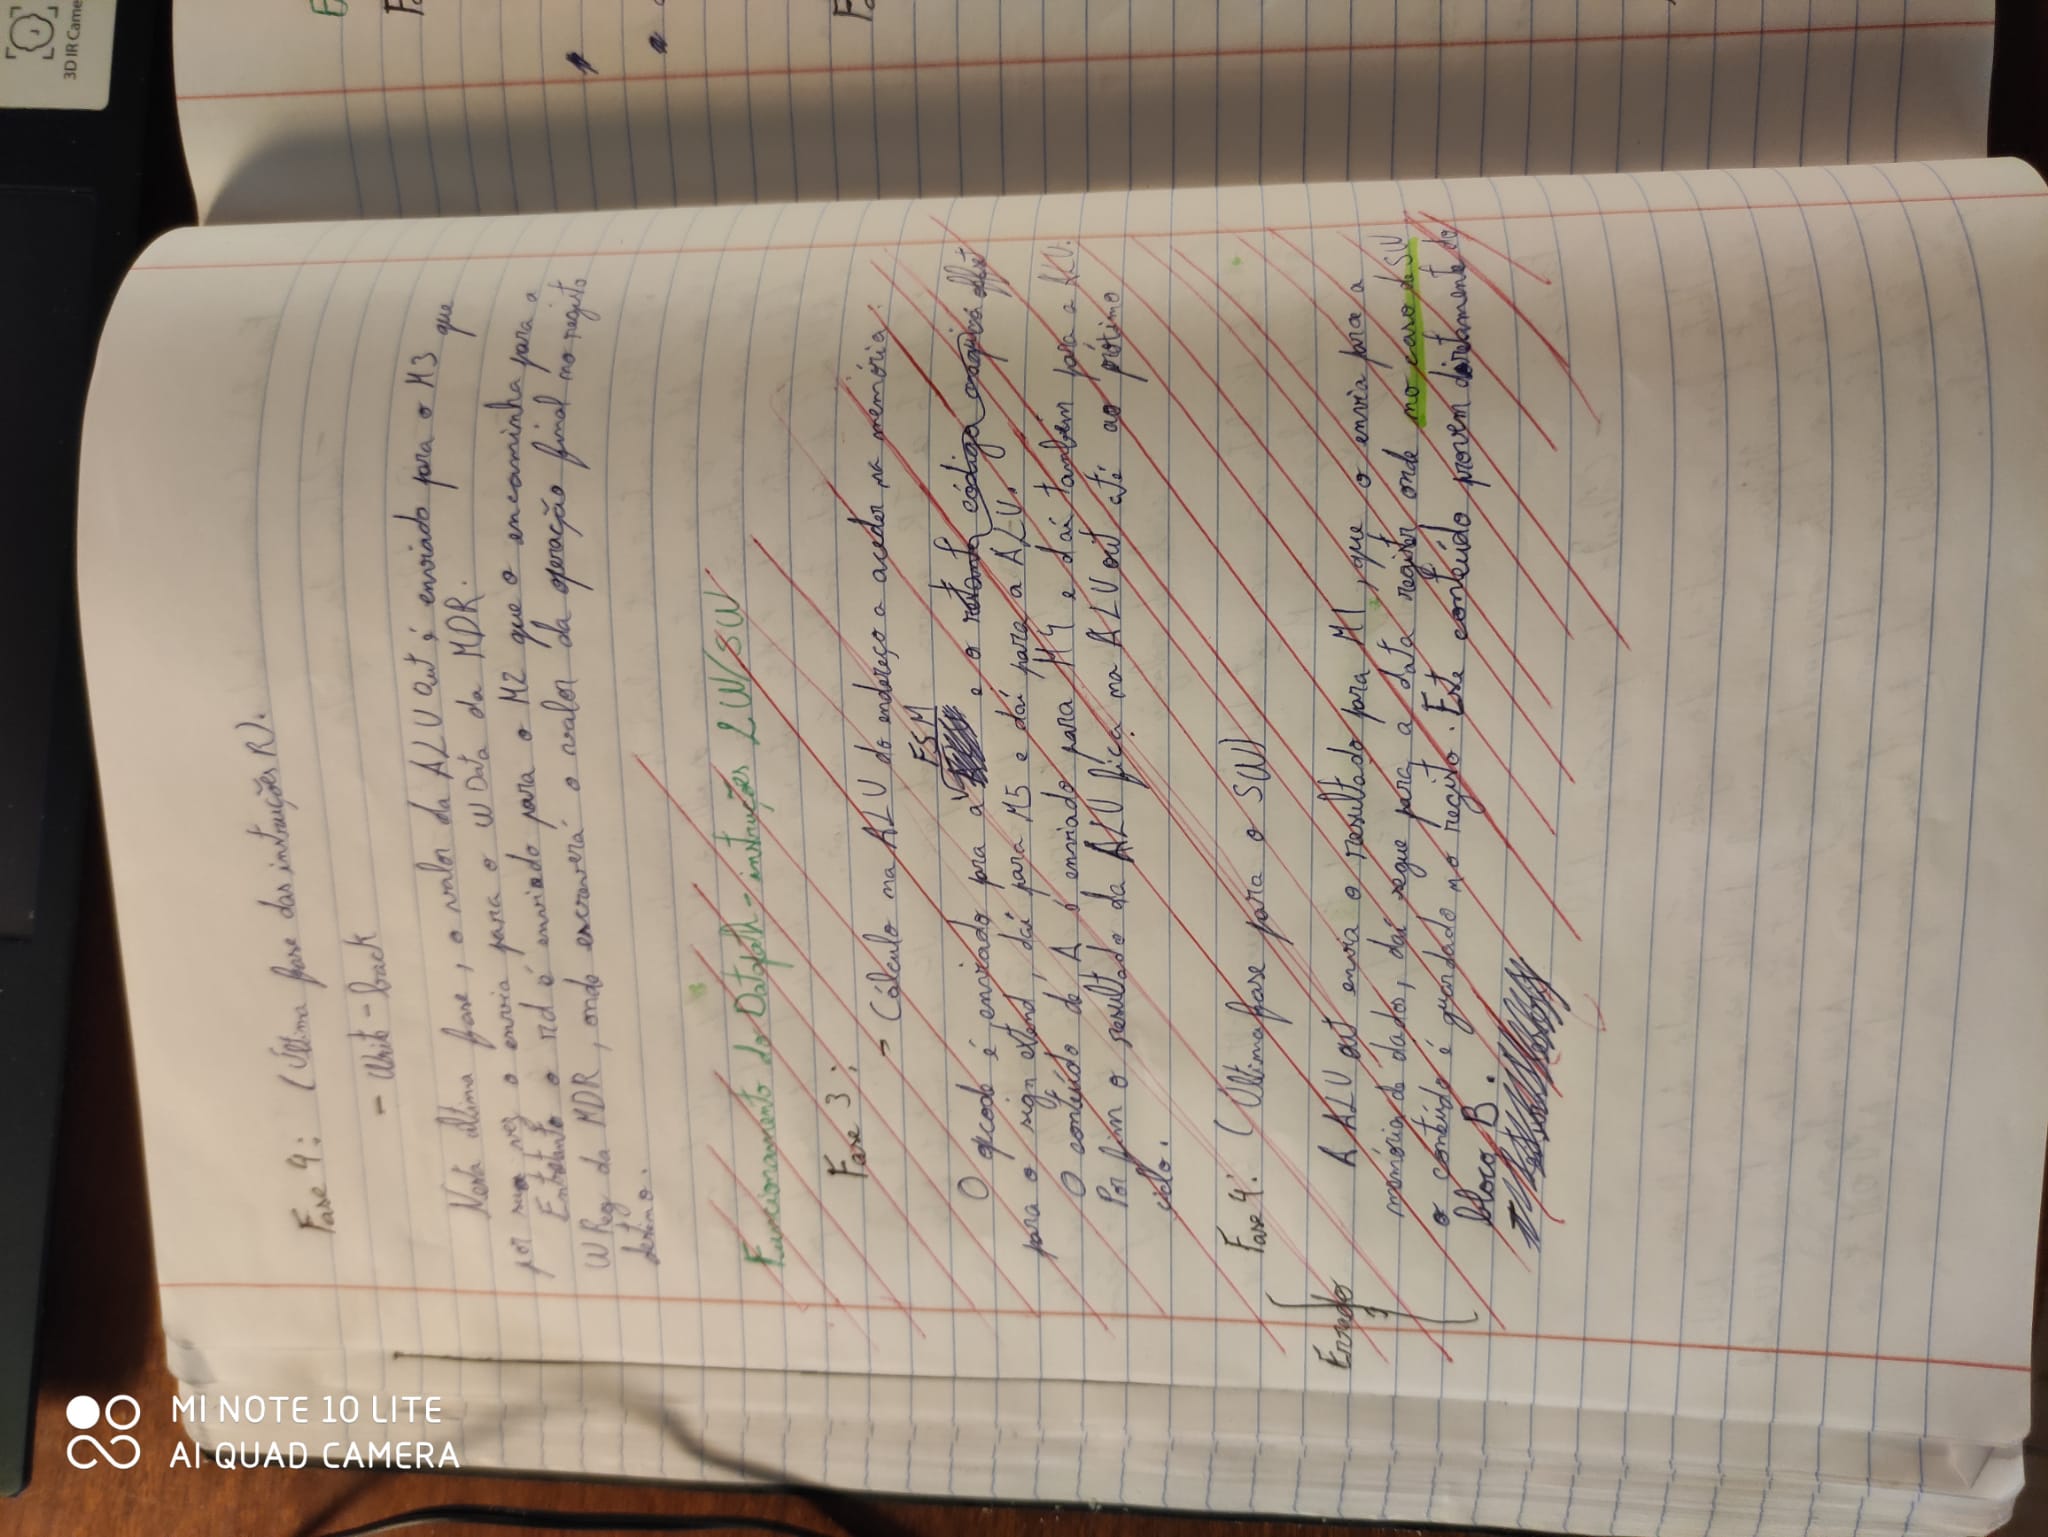 MI NOTE 10 LITE
AI QUAD CAMERA
3D IR Came
Fase 4: (Última fase das instruções R).
- Write-back
Nesta última fase, o valor da ALU Out é enviado para o M3 que
por sua vez o envia para o W Data da MDR.
Entretanto o rd é enviado para o M2 que o encaminha para a
W Reg da MDR, onde escreverá o valor da operação final no registo
destino.
Funcionamento do Datapath - instruções LW/SW
Fase 3:
- Cálculo na ALU do endereço a aceder na memória.
FSM
O opcode é enviado para a e o restante código offset
para o sign extend, daí para M5 e daí para a ALU.
O conteúdo de A é enviado para M4 e daí também para a ALU.
Por fim o resultado da ALU fica na ALU out até ao próximo
ciclo.
Fase 4: (Última fase para o SW)
Errado
A ALU out envia o resultado para M1, que o envia para a
memória de dados, daí segue para a data register onde no caso de SW
o conteúdo é guardado no registo. Este conteúdo provem diretamente do
bloco B.